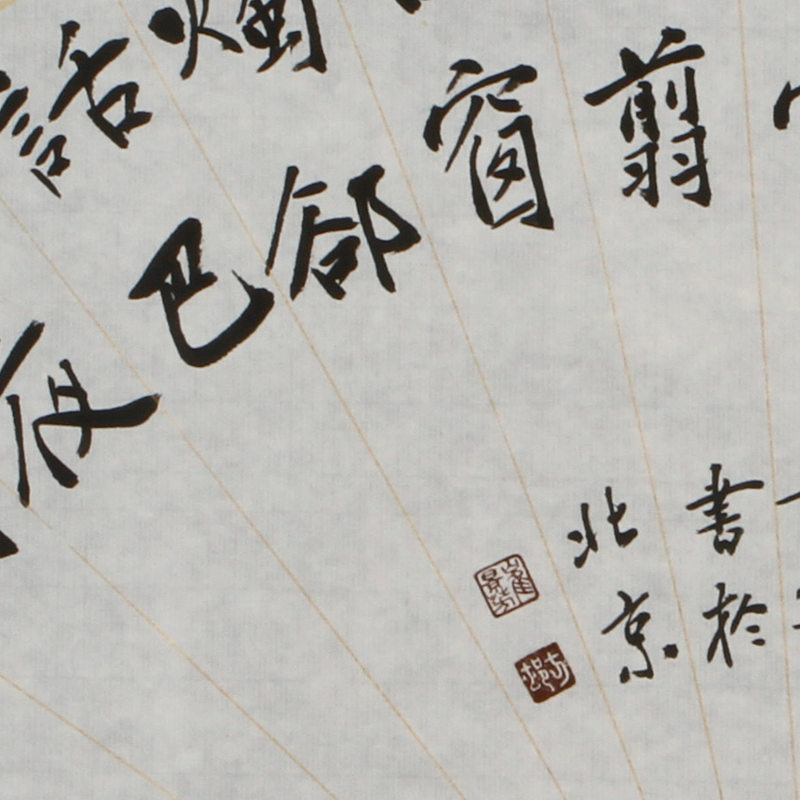 翦
窗
燭郤
話巴
夜
書於
北京